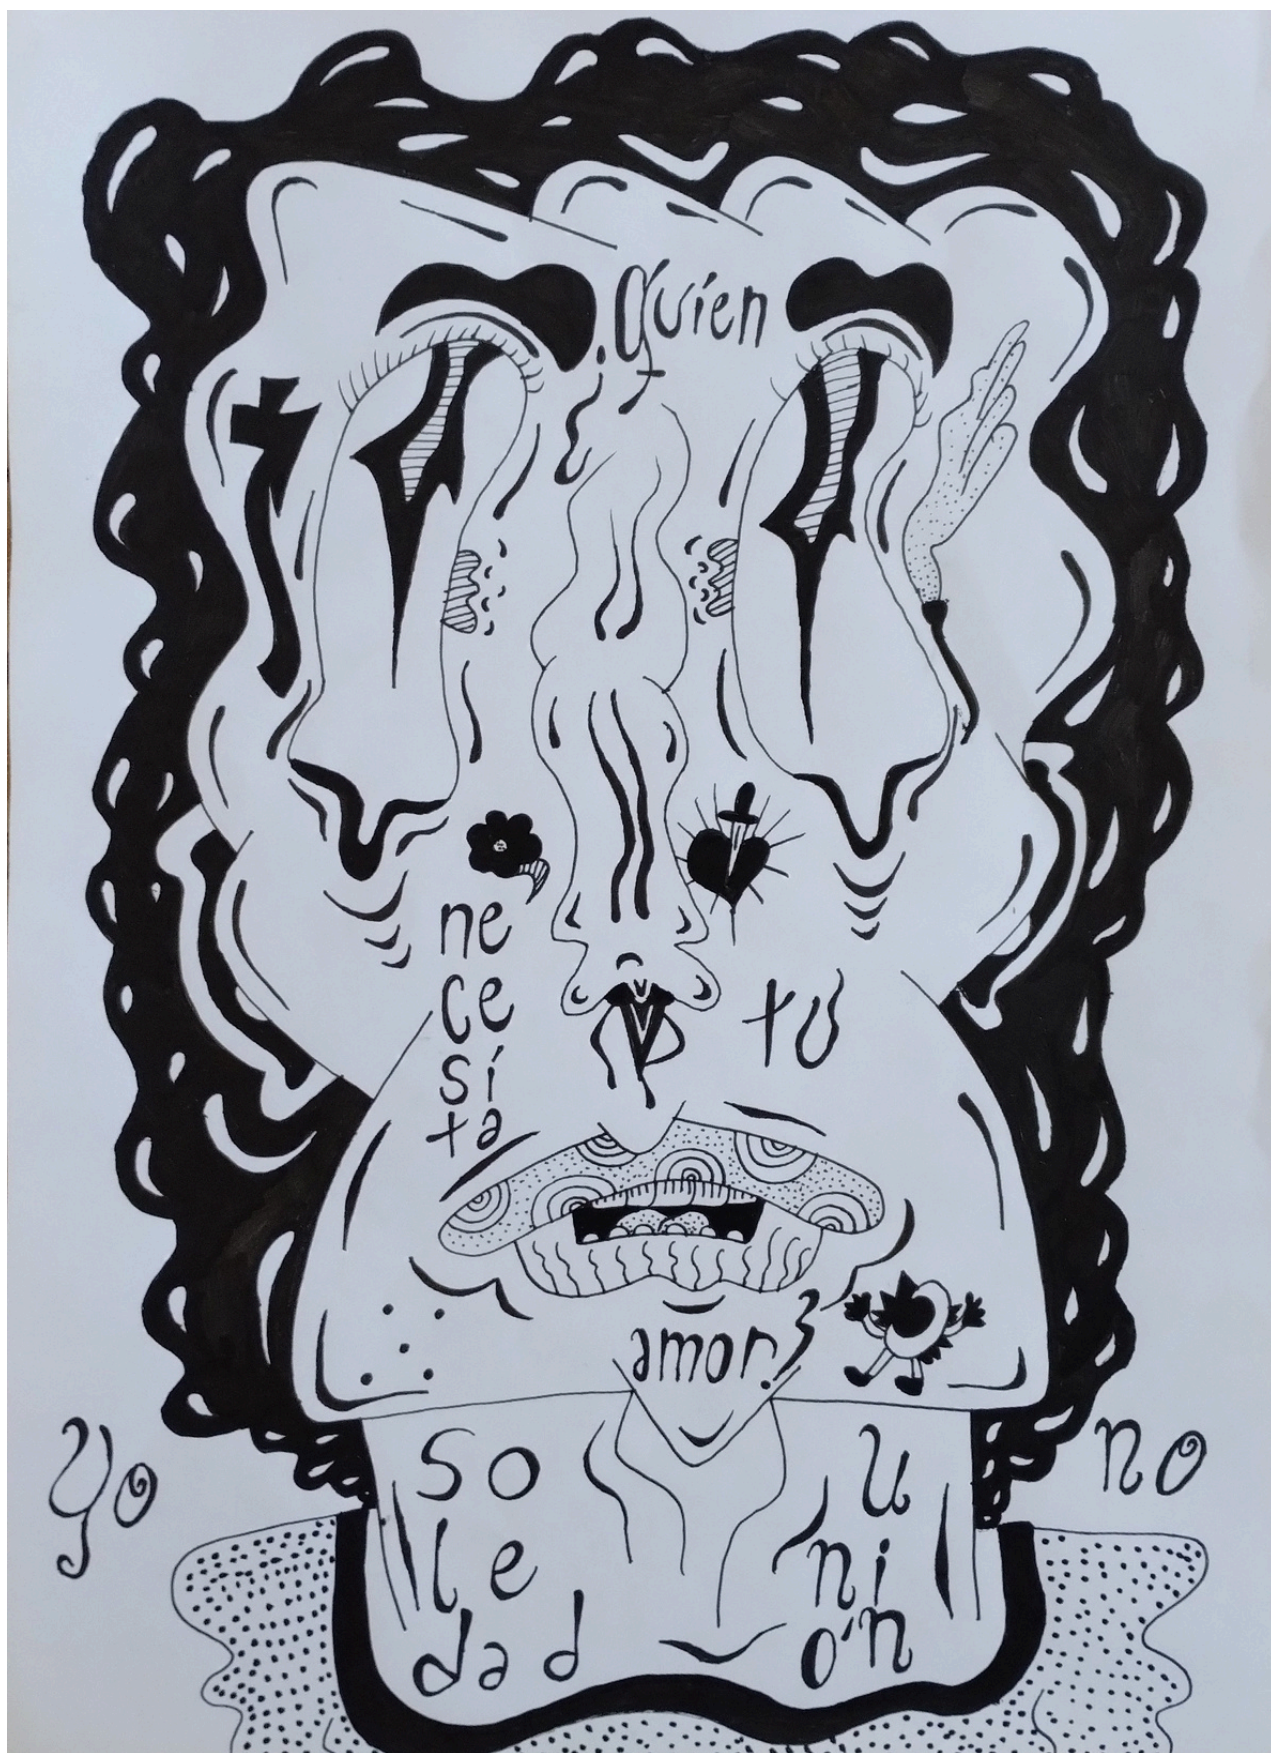 ¿quién
ne
ce
si
ta
tú
amor?
yo
no
so
le
dad
u
ni
ón